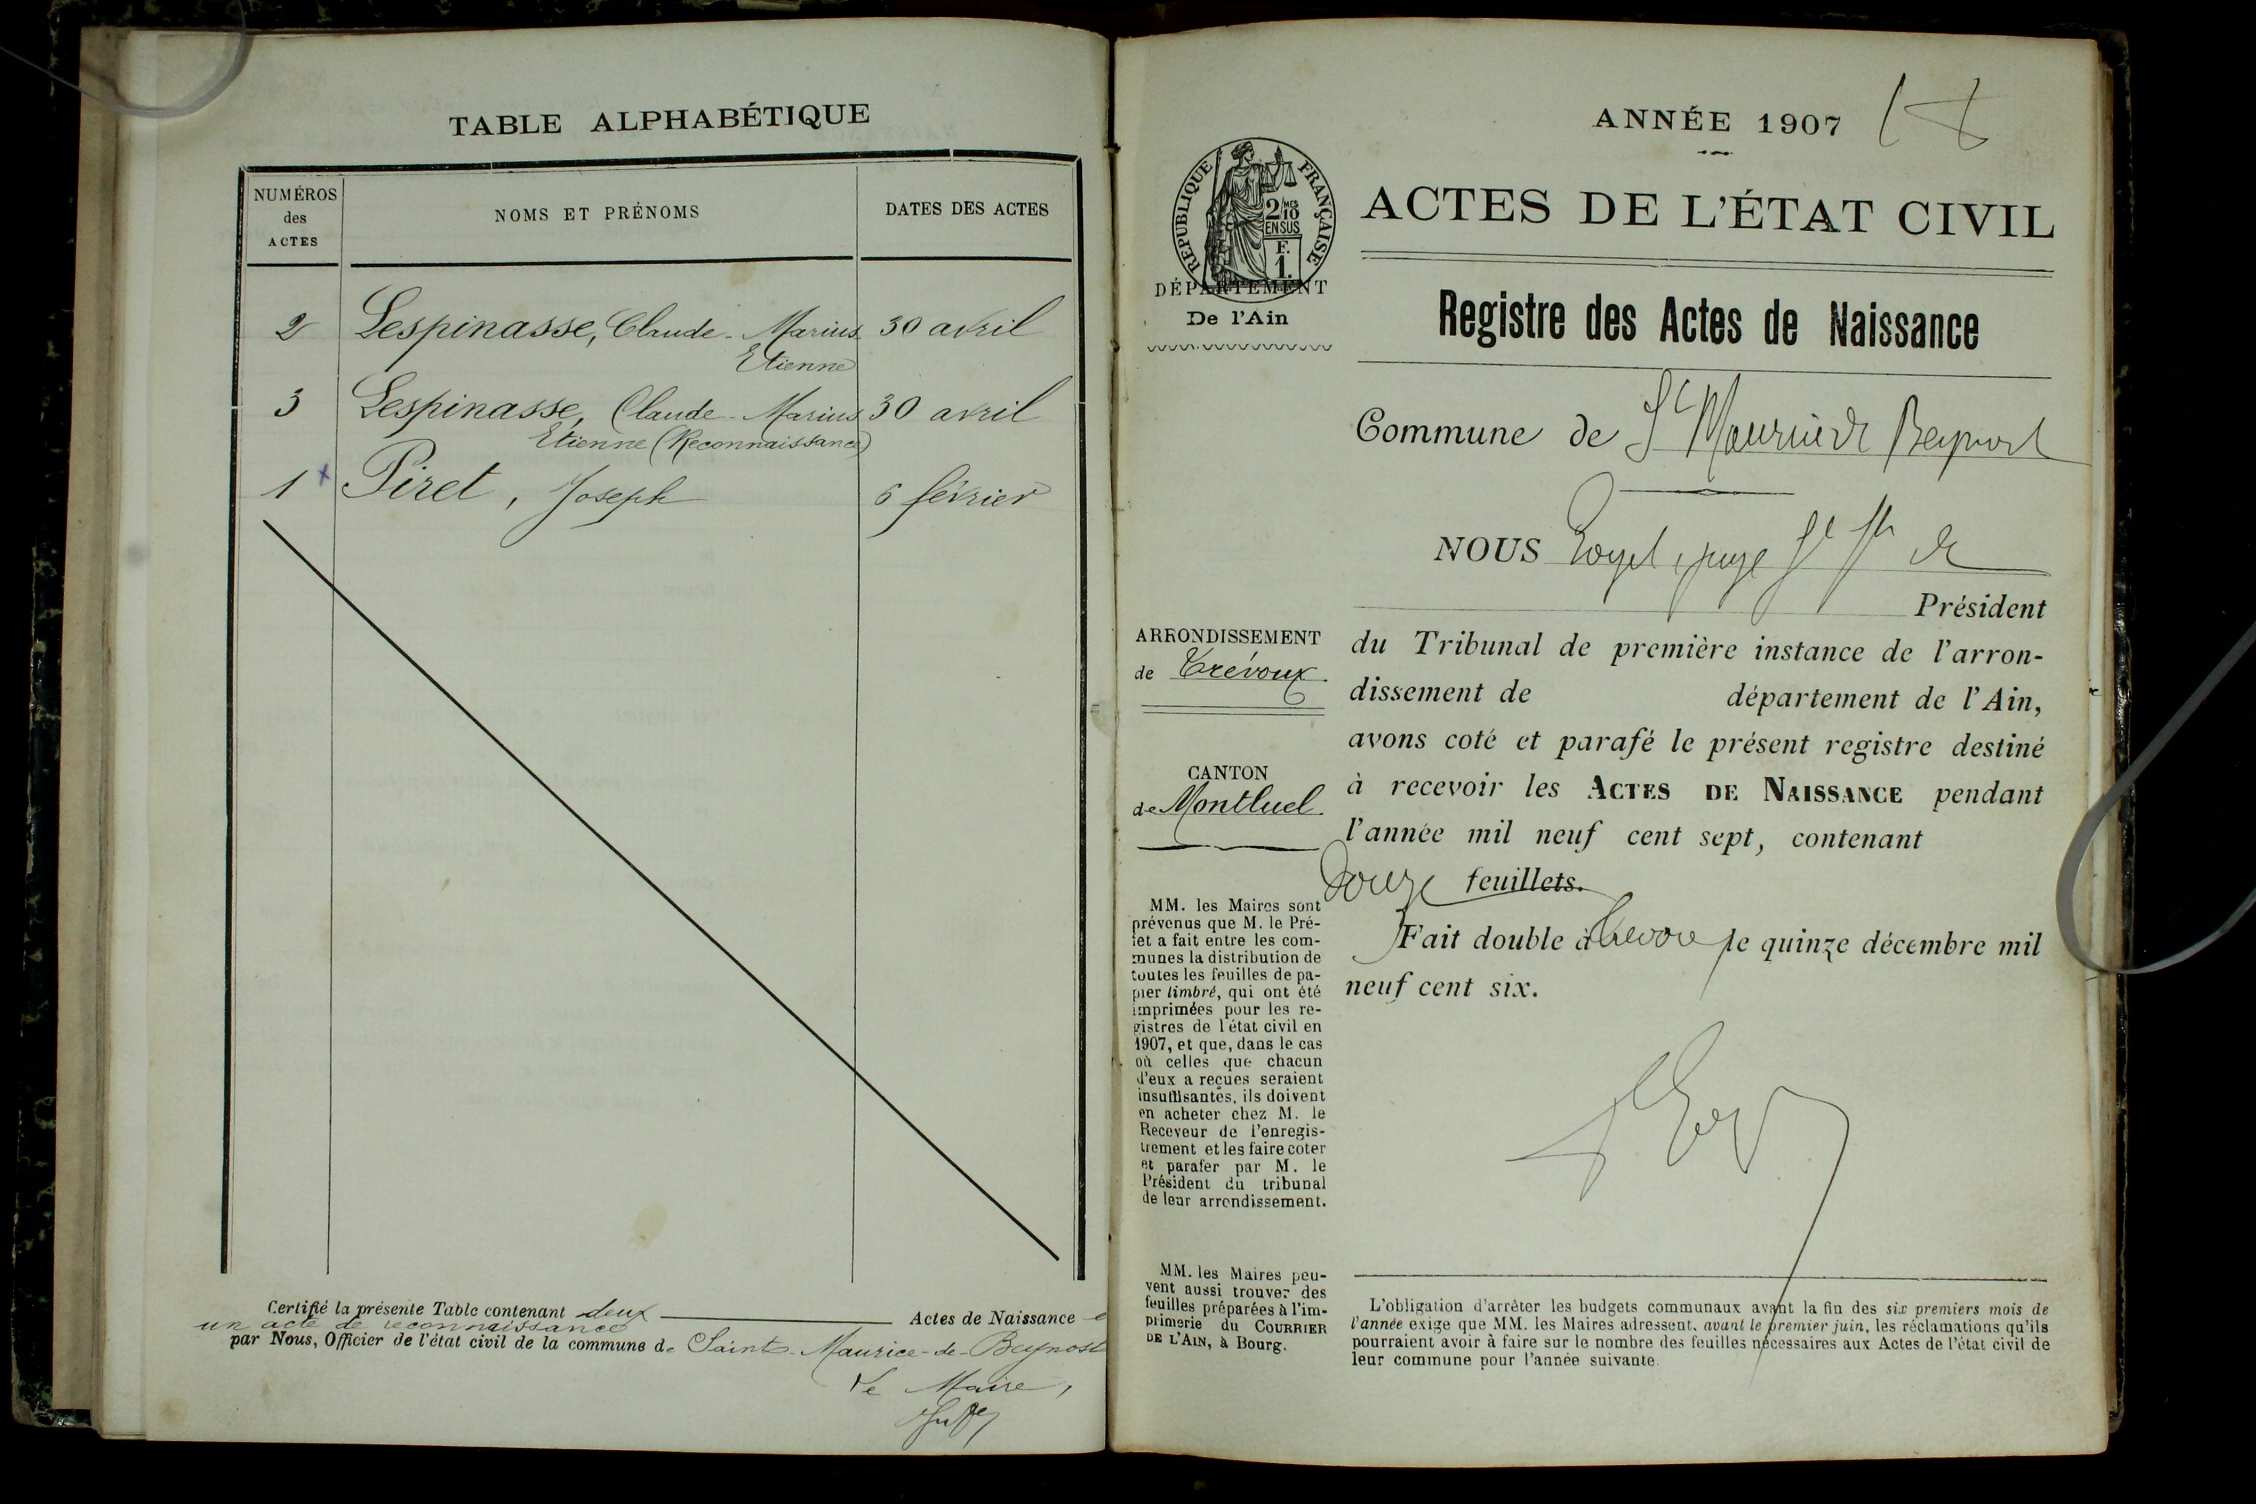 TABLE ALPHABÉTIQUE
NUMÉROS
des
ACTES
NOMS ET PRÉNOMS
DATES DES ACTES
2 Lespinasse, Claude-Marius 30 avril
Etienne
3 Lespinasse, Claude-Marius 30 avril
Etienne (Reconnaissance)
1 Piret, Joseph 6 février
Certifié la présente Table contenant deux Actes de Naissance
un acte de reconnaissance
par Nous, Officier de l'état civil de la commune de Saint-Maurice-de-Beynost
Le Maire,
ANNÉE 1907
RÉPUBLIQUE FRANÇAISE
2/10 MES
EN SUS
F.
1.
ACTES DE L'ÉTAT CIVIL
DÉPARTEMENT
De l'Ain
Registre des Actes de Naissance
Commune de St Maurice de Beynost
NOUS juge
Président
ARRONDISSEMENT
de Trévoux.
CANTON
de Montluel.
du Tribunal de première instance de l'arron-
dissement de département de l'Ain,
avons coté et parafé le présent registre destiné
à recevoir les ACTES DE NAISSANCE pendant
l'année mil neuf cent sept, contenant
douze feuillets.
Fait double à Trévoux le quinze décembre mil
neuf cent six.
MM. les Maires sont
prévenus que M. le Pré-
fet a fait entre les com-
munes la distribution de
toutes les feuilles de pa-
pier timbré, qui ont été
imprimées pour les re-
gistres de l'état civil en
1907, et que, dans le cas
où celles que chacun
d'eux a reçues seraient
insuffisantes, ils doivent
en acheter chez M. le
Receveur de l'enregis-
trement et les faire coter
et parafer par M. le
Président du tribunal
de leur arrondissement.
MM. les Maires peu-
vent aussi trouver des
feuilles préparées à l'im-
primerie du COURRIER
DE L'AIN, à Bourg.
L'obligation d'arrêter les budgets communaux avant la fin des six premiers mois de
l'année exige que MM. les Maires adressent, avant le premier juin, les réclamations qu'ils
pourraient avoir à faire sur le nombre des feuilles nécessaires aux Actes de l'état civil de
leur commune pour l'année suivante.